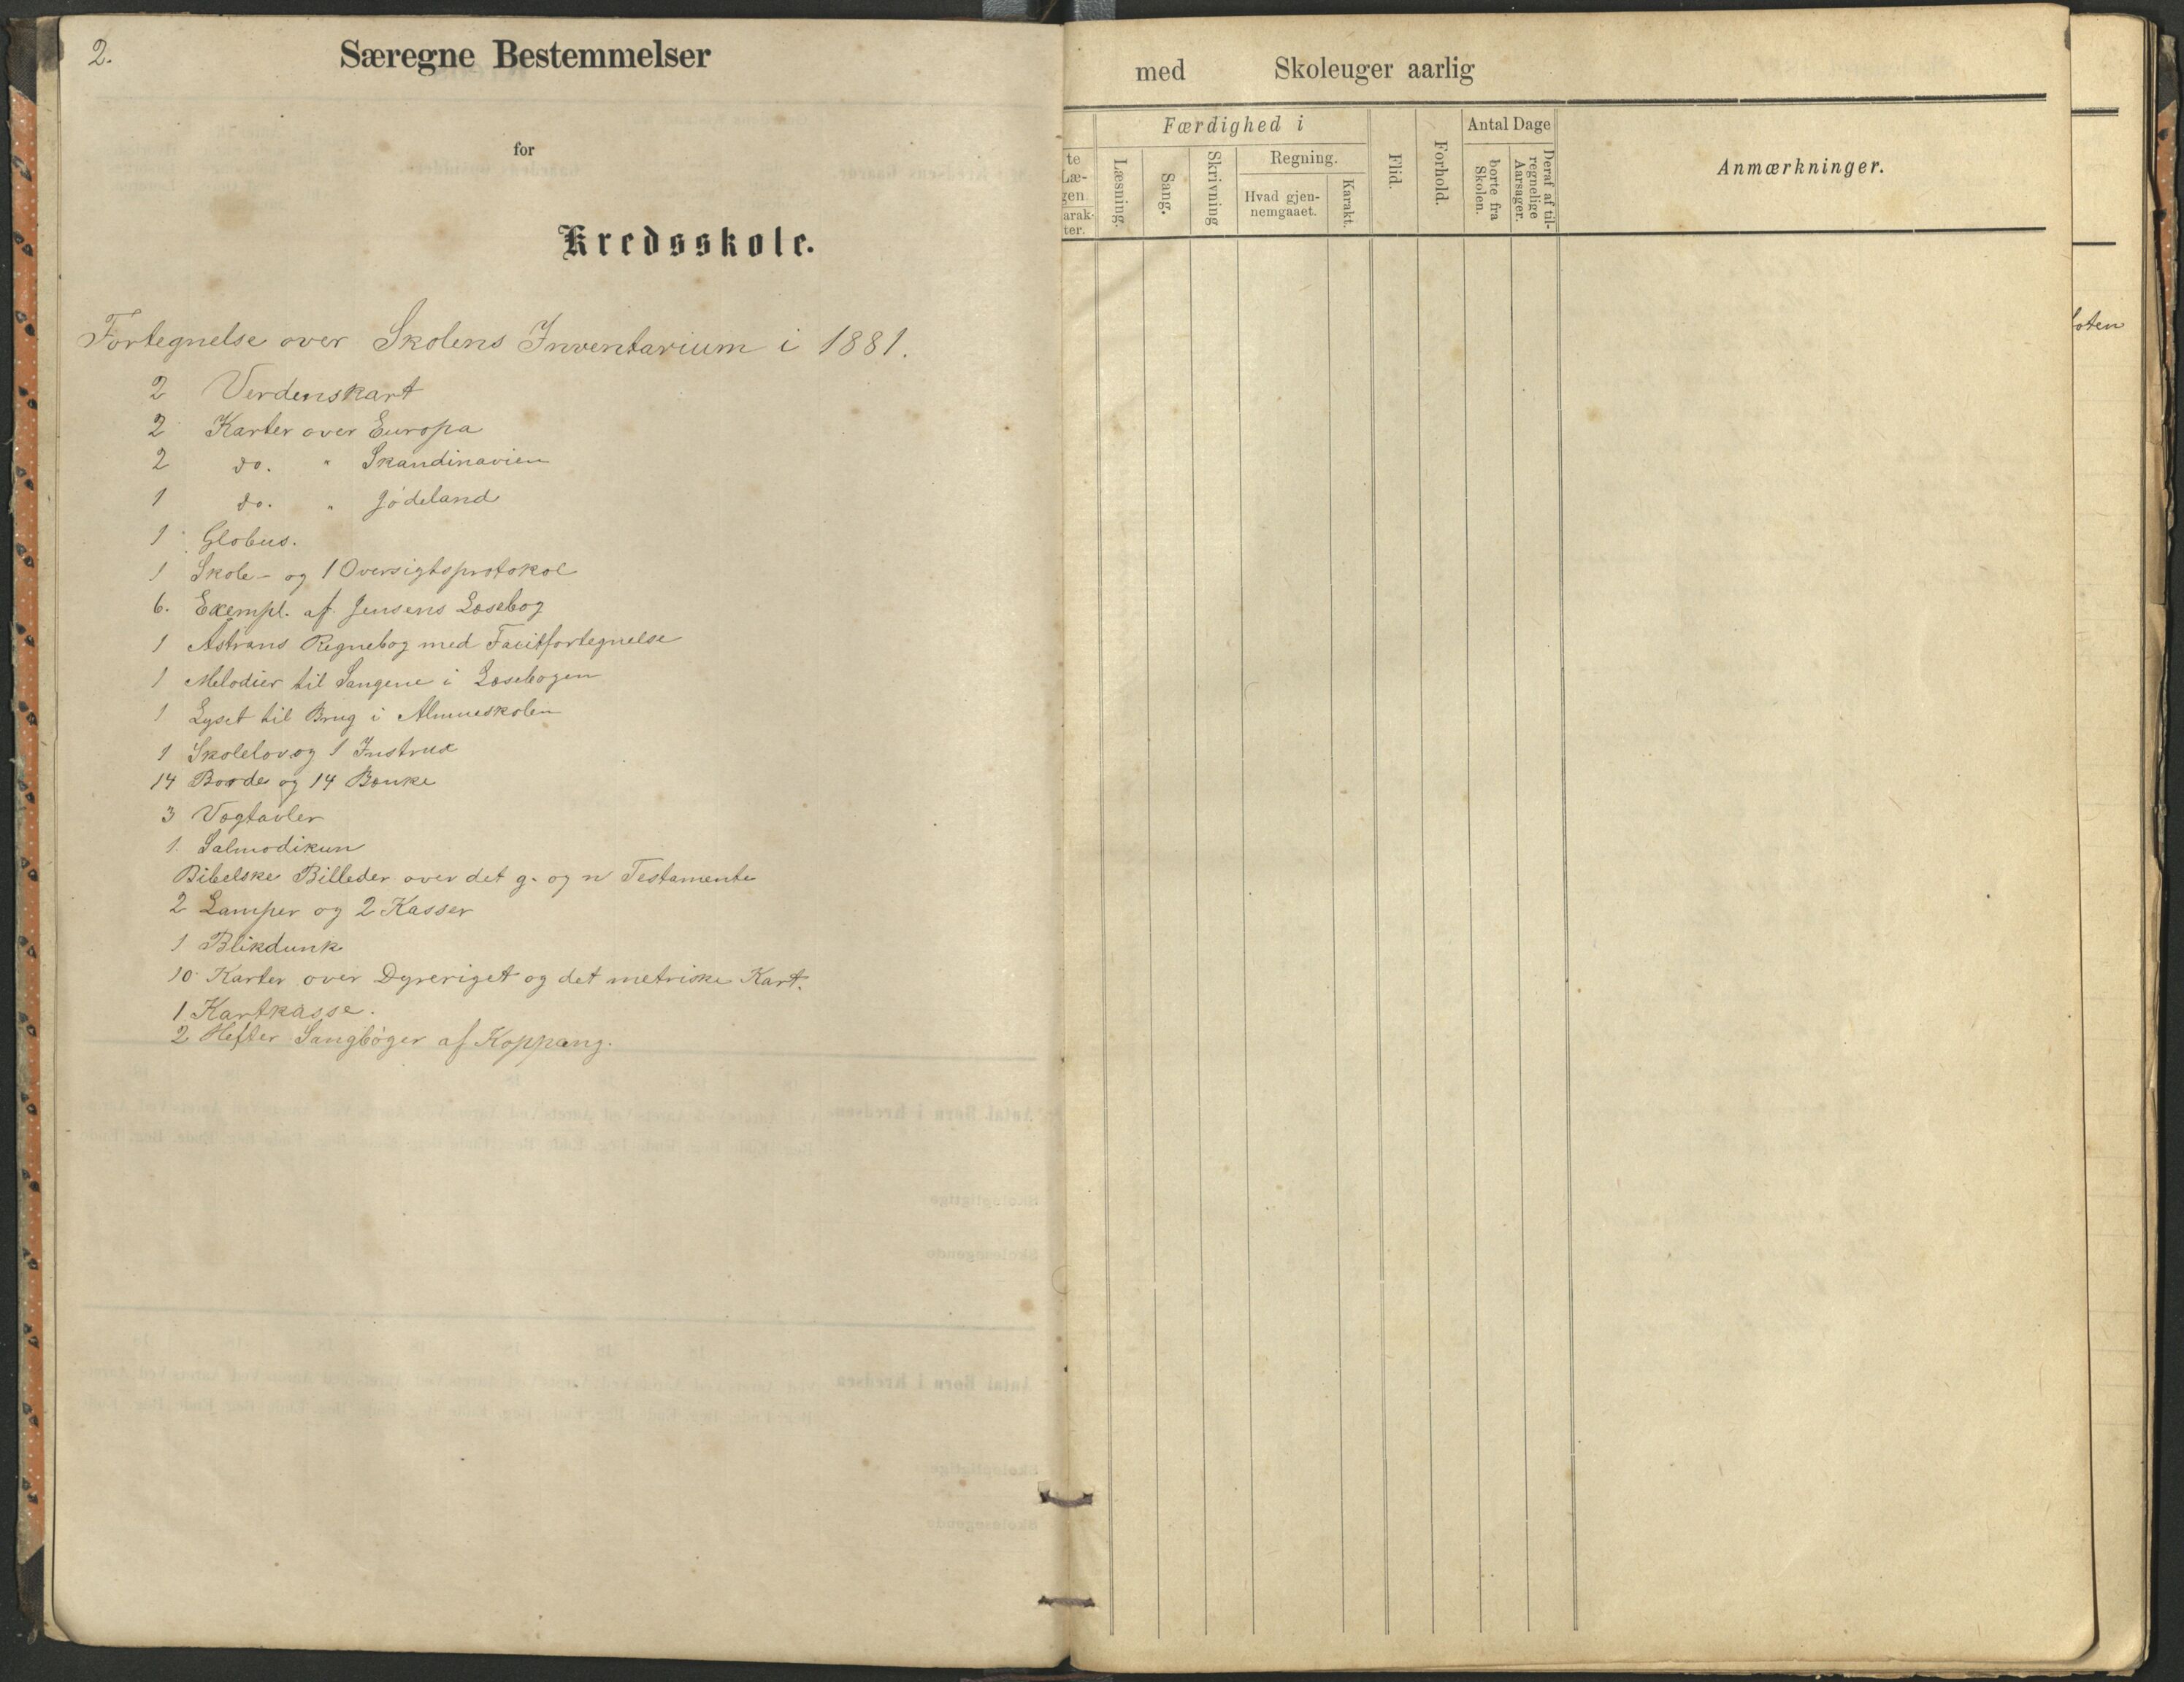 2.
Særegne Bestemmelser
for
Kredsskole.
Fortegnelse over Skolens Inventarium i 1881.
2 Verdenskart
2 Karter over Europa
2 do. " Skandinavien
1 do. " Jødeland
1 Globus.
1 Skole- og 1 Oversigtsprotokol
6. Exempl. af Jensens Læsebog
1 Astrans Regnebog med Facitfortegnelse
1 Melodier til Sangene i Læsebogen
1 Lyset til Brug i Almueskolen
1 Skolelov og 1 Instrux
14 Borde og 14 Bænke
3 Vægtavler
1. Salmodikun
Bibelske Billeder over det g. og n Testamente
2 Lamper og 2 Kasser
1 Blikdunk
10 Karter over Dyreriget og det metriske Kart.
1 Kartkasse.
2 Hefter Sangbøger af Koppang.
med Skoleuger aarlig
te
Læ-
gen.
arak-
ter.
Færdighed i
Læsning.
Sang.
Skrivning
Regning.
Hvad gjen-
nemgaaet.
Karakt.
Flid.
Forhold.
Antal Dage
borte fra
Skolen.
Deraf af til-
regnelige
Aarsager.
Anmærkninger.
oten